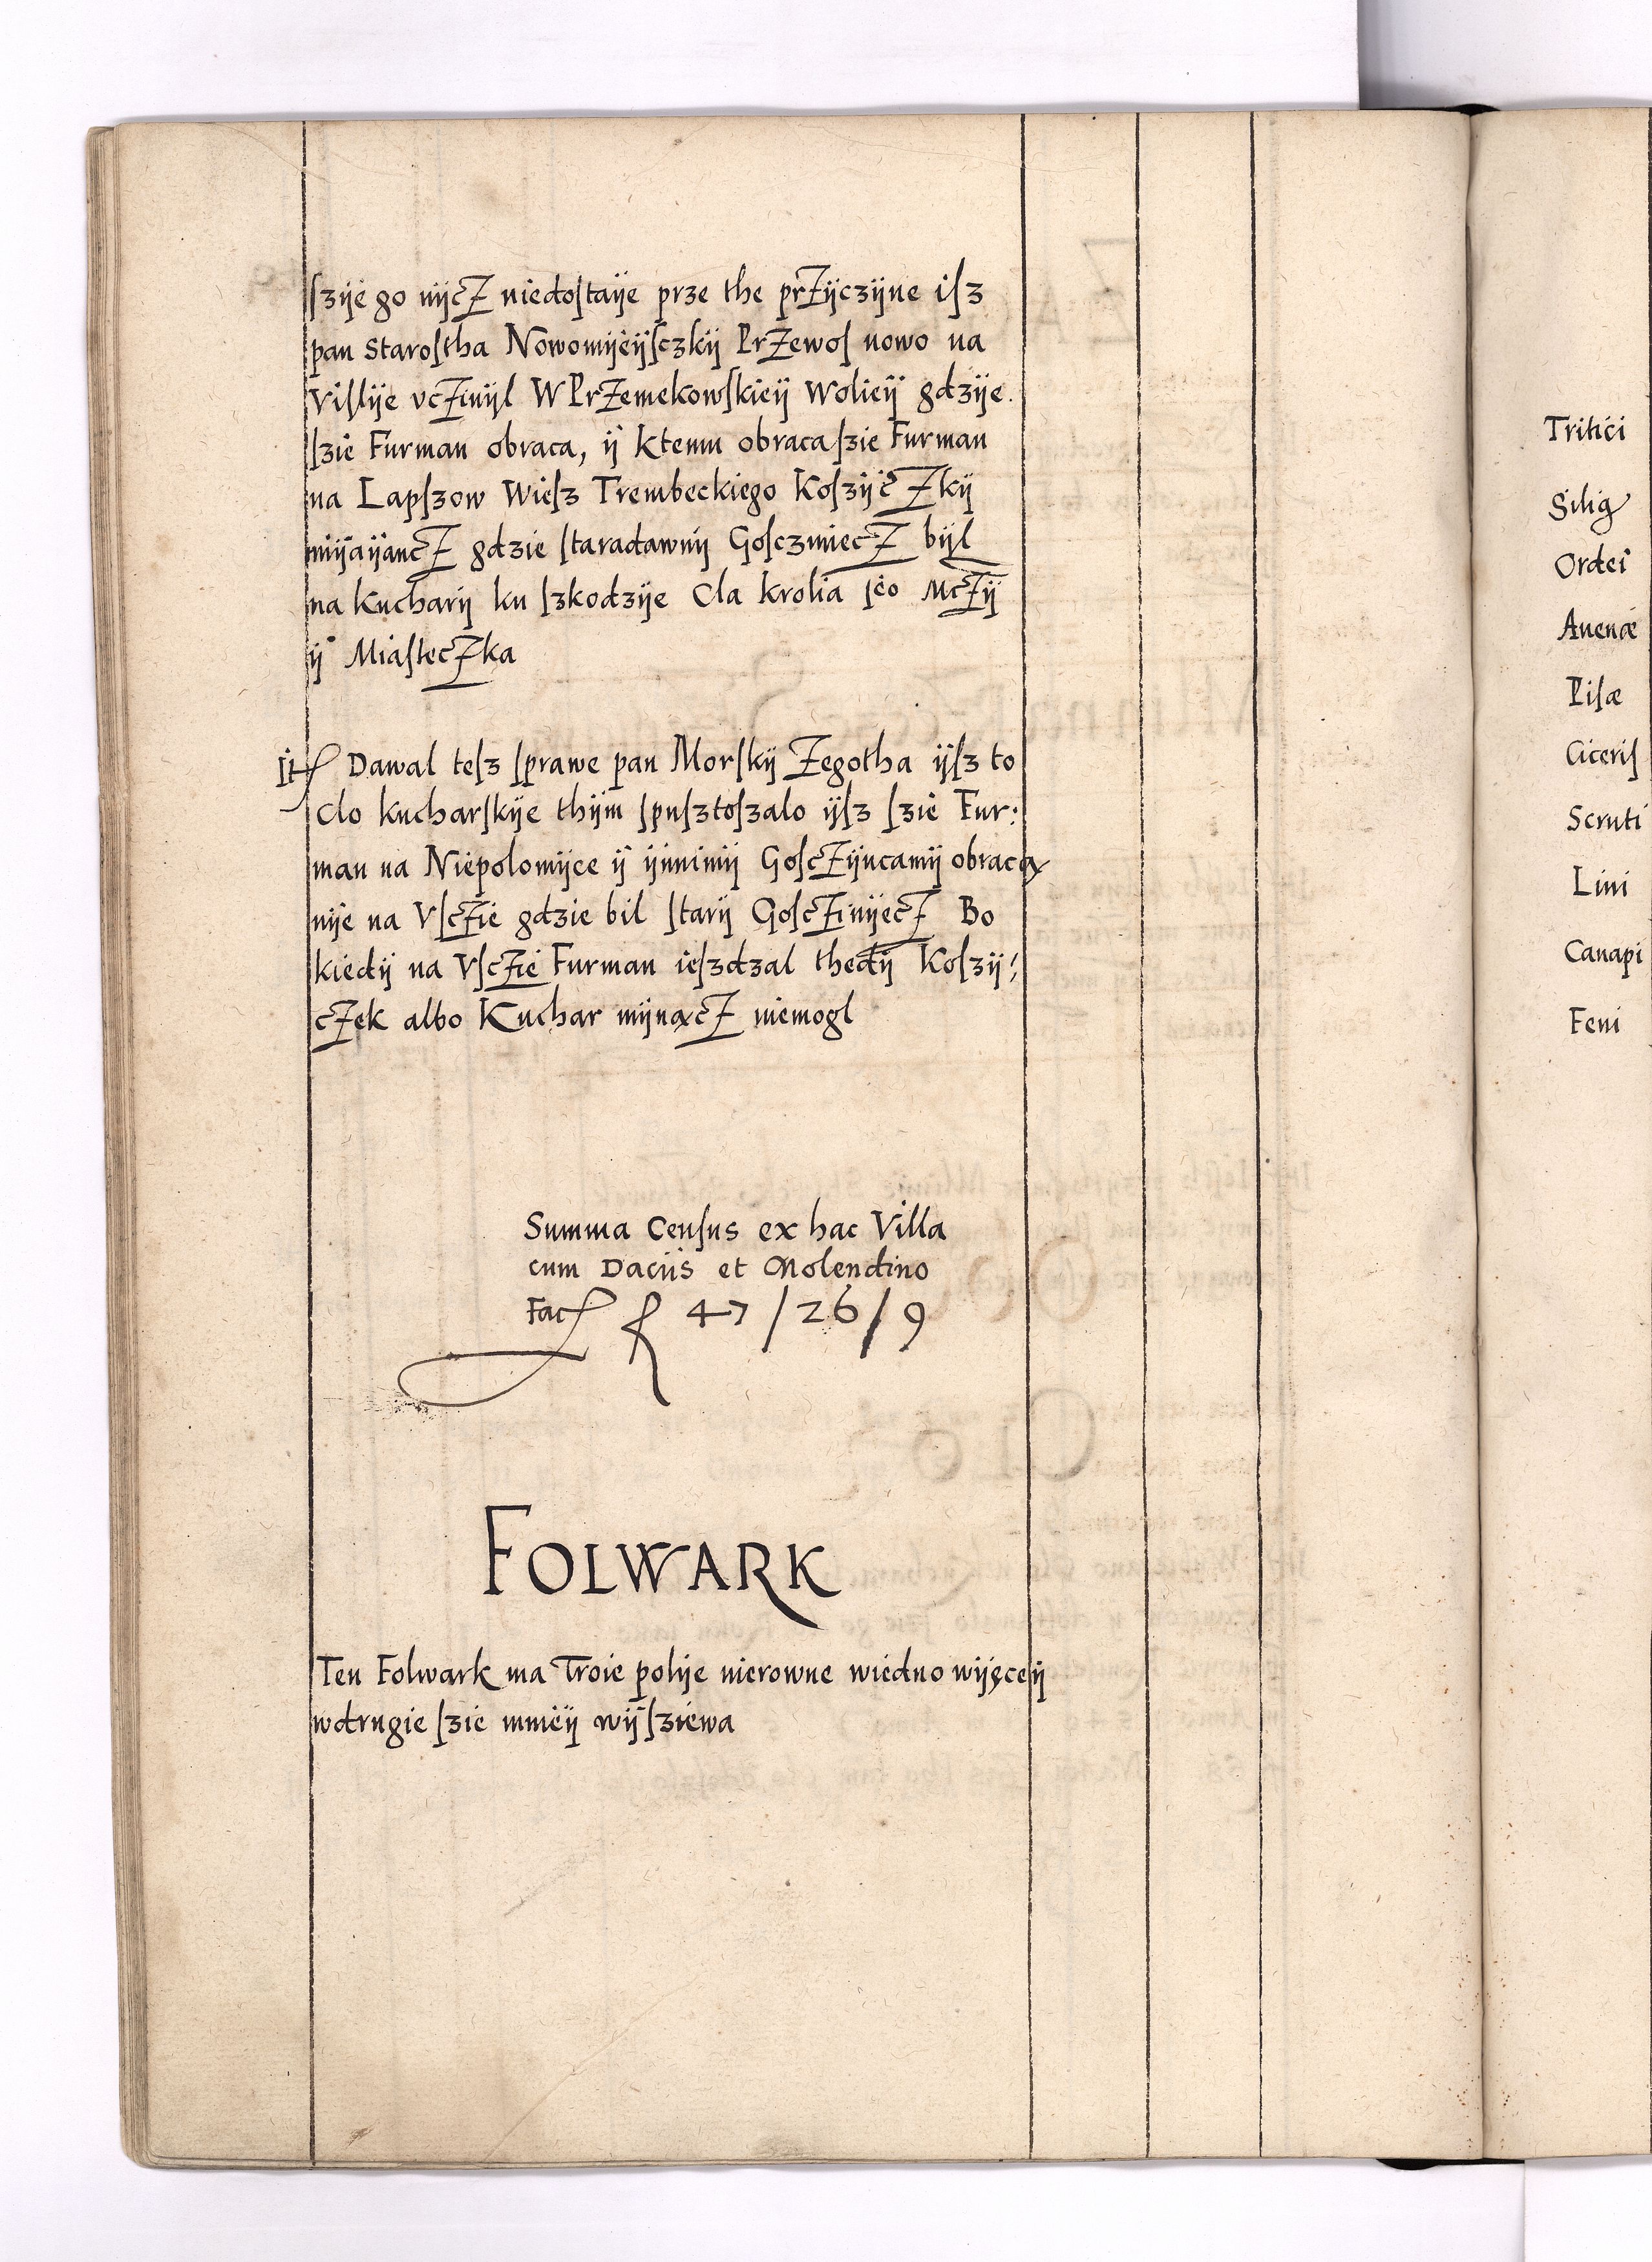 ſzÿe go nÿcZ niedoſtaÿe prze the prZÿczÿne iſz
pan Staroſtha Nowomÿeÿſczkÿ PrZewoſ nowo na
Viſlÿe vcZinÿl W PrZemekowſkieÿ Wolieÿ gdzÿe.
ſzie Furman obraca, ÿ ktemu obraca ſzie Furman
na Lapſzow Wieſz Trembeckiego KoſzÿcZkÿ
mÿaÿancZ gdzie ſtaradawnÿ GoſczniecZ bÿl
na Kucharÿ ku ſzkodzÿe Cla krolia Jeo McZÿ
ÿ MiaſtecZka
It Dawal teſz ſprawe pan Morſkÿ Zegotha ÿſz to
Clo kucharſkÿe thÿm ſpuſztoſzalo ÿſz ſzie Fur:
man na Niepolomÿce ÿ ÿnnimÿ GoſcZÿncamÿ obraca
nÿe na VſcZie gdzie bil ſtarÿ GoſcZinÿecZ Bo
kiedÿ na VſcZie Furman ieſzdzal thedÿ Koſzÿ:
cZek albo Kuchar mÿnącZ niemogl
Summa Cenſus ex hac Villa
cum Daciis et Molendino
Fac f 47 / 26 / 9
FOLWARK
Ten Folwark ma Troie polÿe nierowne wiedno wÿęceÿ
wdrugie ſzie mnieÿ wÿſziewa
Tritici
Silig
Ordei
Auenæ
Piſæ
Ciceriſ
Scruti
Lini
Canapi
Feni